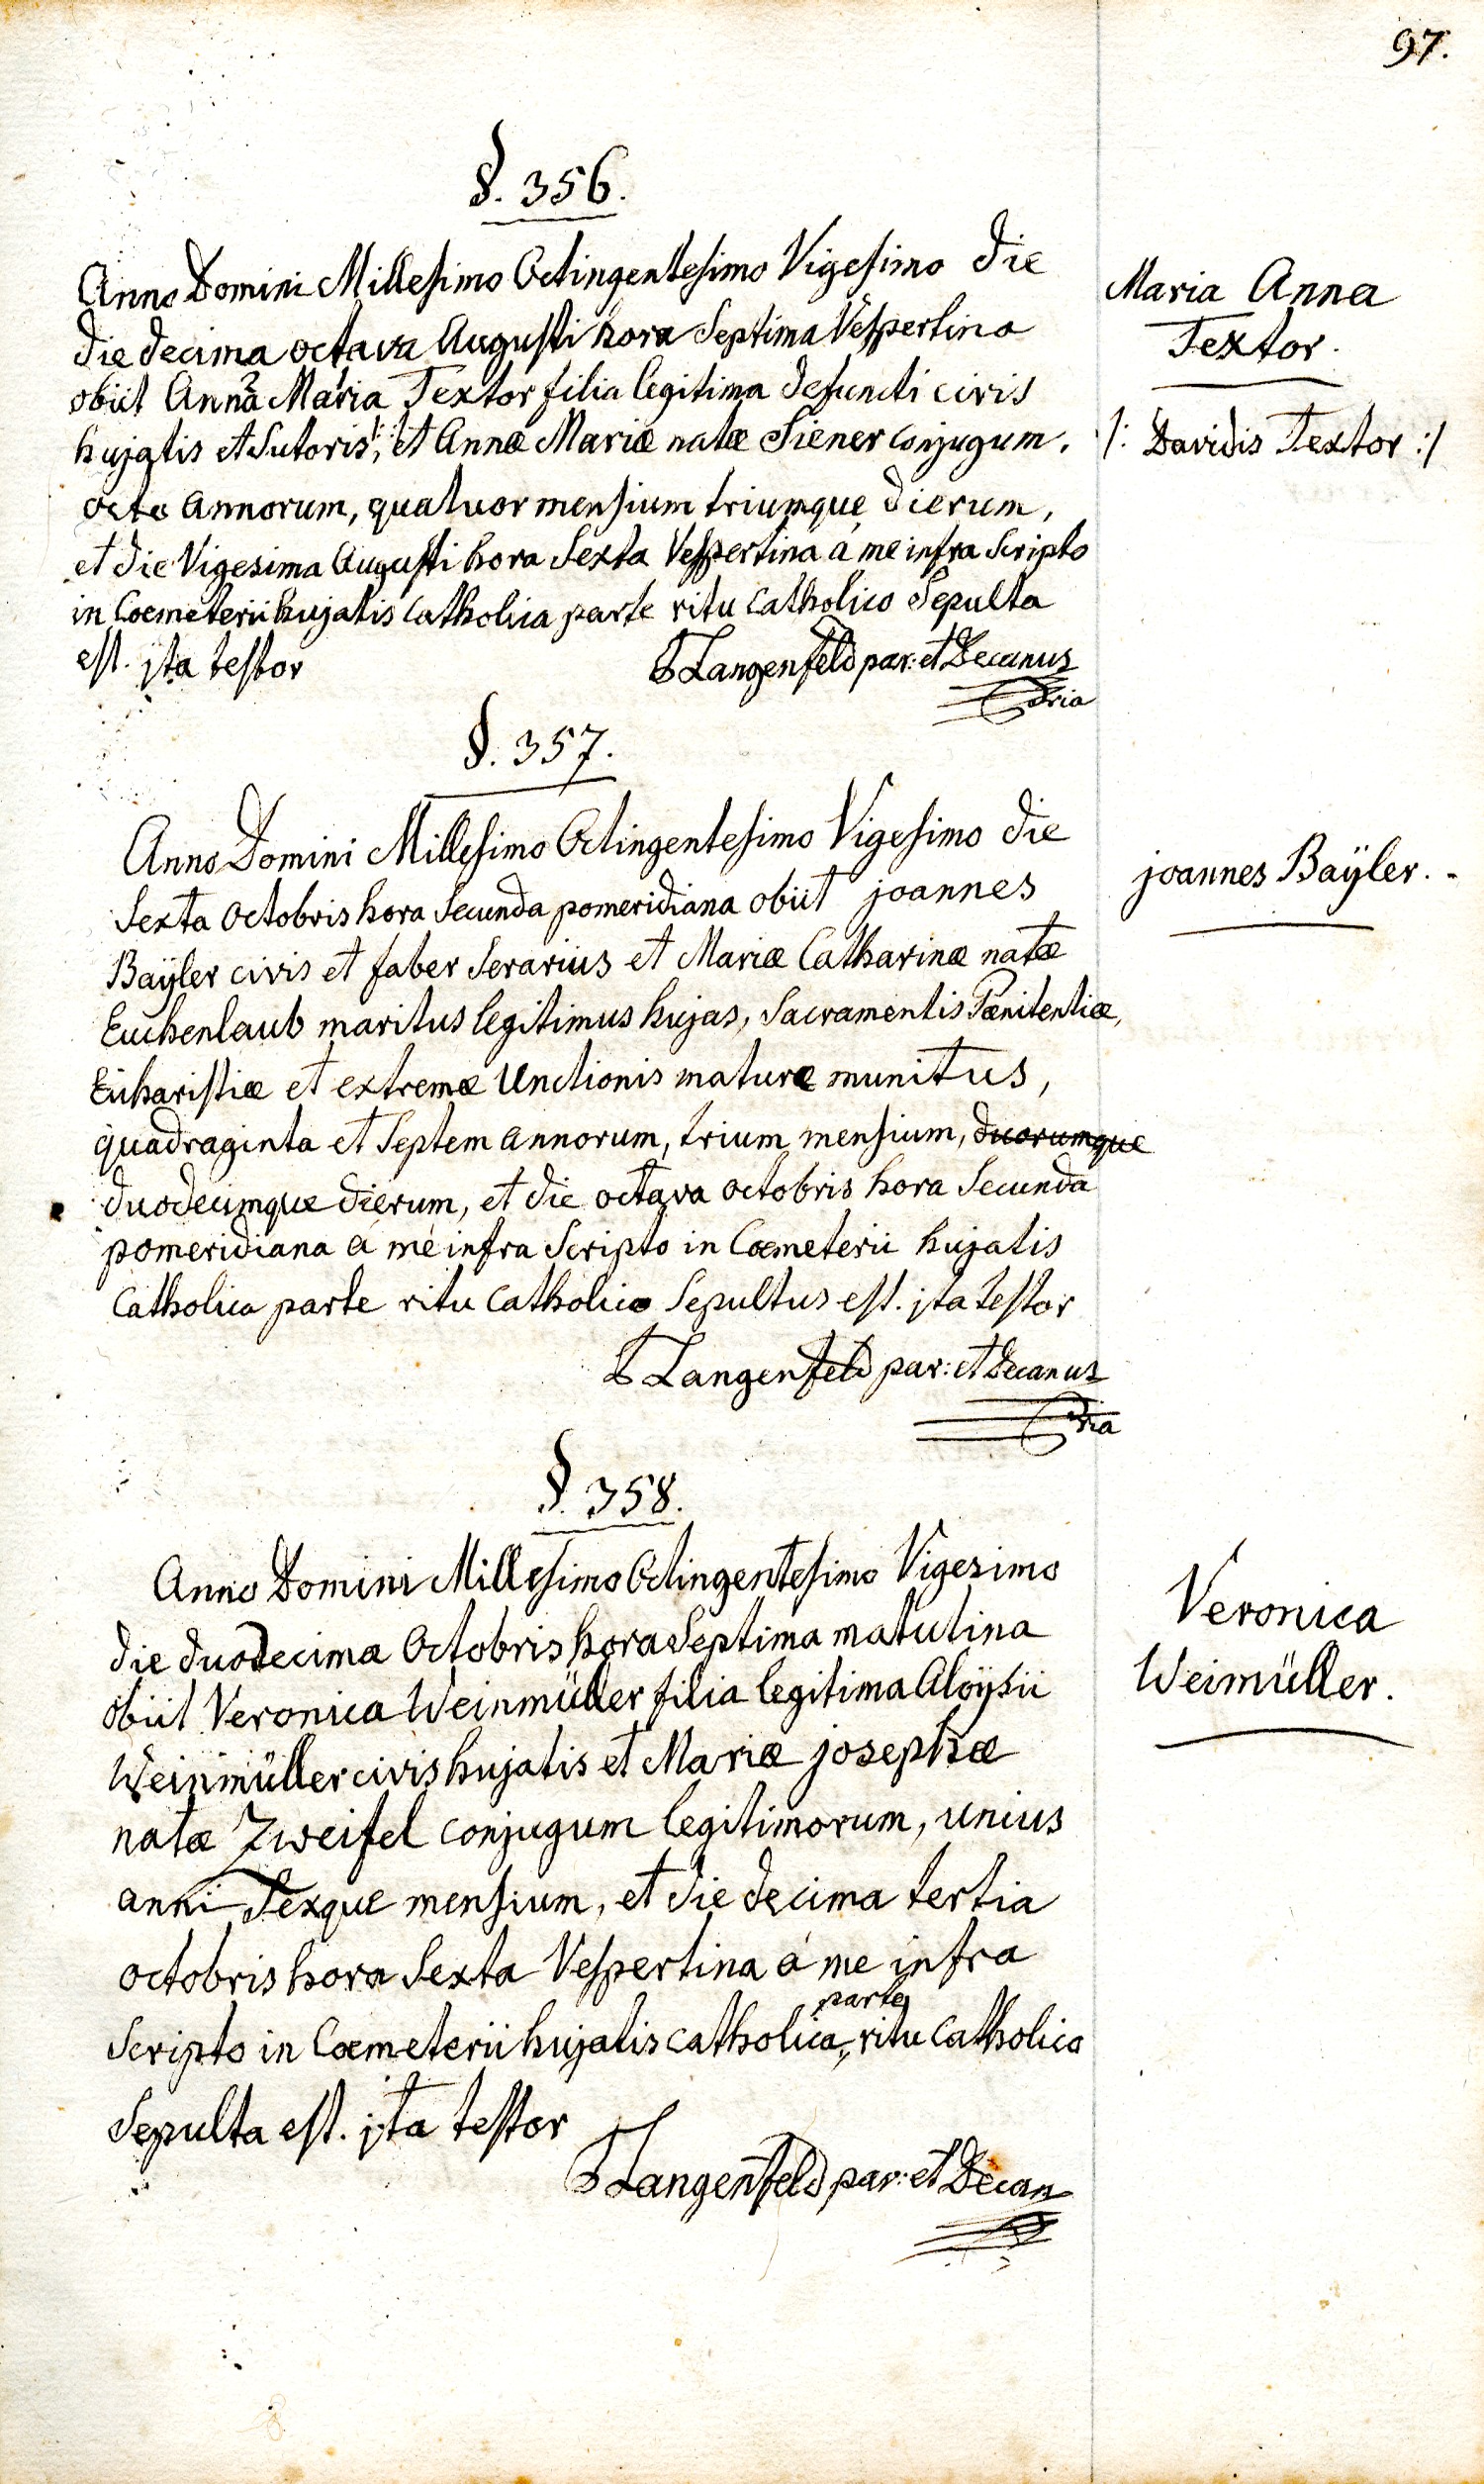 97.
§. 356.
Anno Domini Millesimo Octingentesimo Vigesimo die
die decima octava Augusti hora Septima Vespertina
obiit Anna Maria Textor filia legitima defuncti civis
hujatis et Sutoris /: :/ et Annæ Mariæ natæ Siener conjugum.
octo annorum, quatuor mensium triumque dierum,
et die Vigesima Augusti hora Sexta Vespertina á me infra Scripto
in Coemeterii hujatis catholica parte ritu catholico Sepulta
est. jta testor
Langenfeld par: et Decanus
Maria Anna
Textor.
/: Davidis Textor :/
§. 357.
Anno Domini Millesimo Octingentesimo Vigesimo die
Sexta octobris hora Secunda pomeridiana obiit joannes
Baÿler civis et faber Serarius et Mariæ Catharinæ natæ
Euchenlaub maritus legitimus hujas, Sacramentis Pænitentiæ,
Eucharistiæ et extremæ Unctionis mature munitus,
quadraginta et Septem annorum, trium mensium, duorumque
duodecimque dierum, et die octava octobris hora Secunda
pomeridiana á me infra Scripto in Coemeterii hujatis
Catholica parte ritu catholico Sepultus est. jta testor
Langenfeld par: et Decanus
joannes Baÿler.
§. 358.
Anno Domini Millesimo Octingentesimo Vigesimo
die duodecima Octobris hora Septima matutina
obiit Veronica Weinmüller filia legitima Aloÿsii
Weinmüller civis hujatis et Mariæ josephæ
natæ Zweifel conjugum legitimorum, unius
anni Sexque mensium, et die decima tertia
octobris hora Sexta Vespertina á me infra
parte
Scripto in Coemeterii hujatis catholica, ritu Catholico
Sepulta est. jta testor
Langenfeld par: et Decan
Veronica
Weimüller.